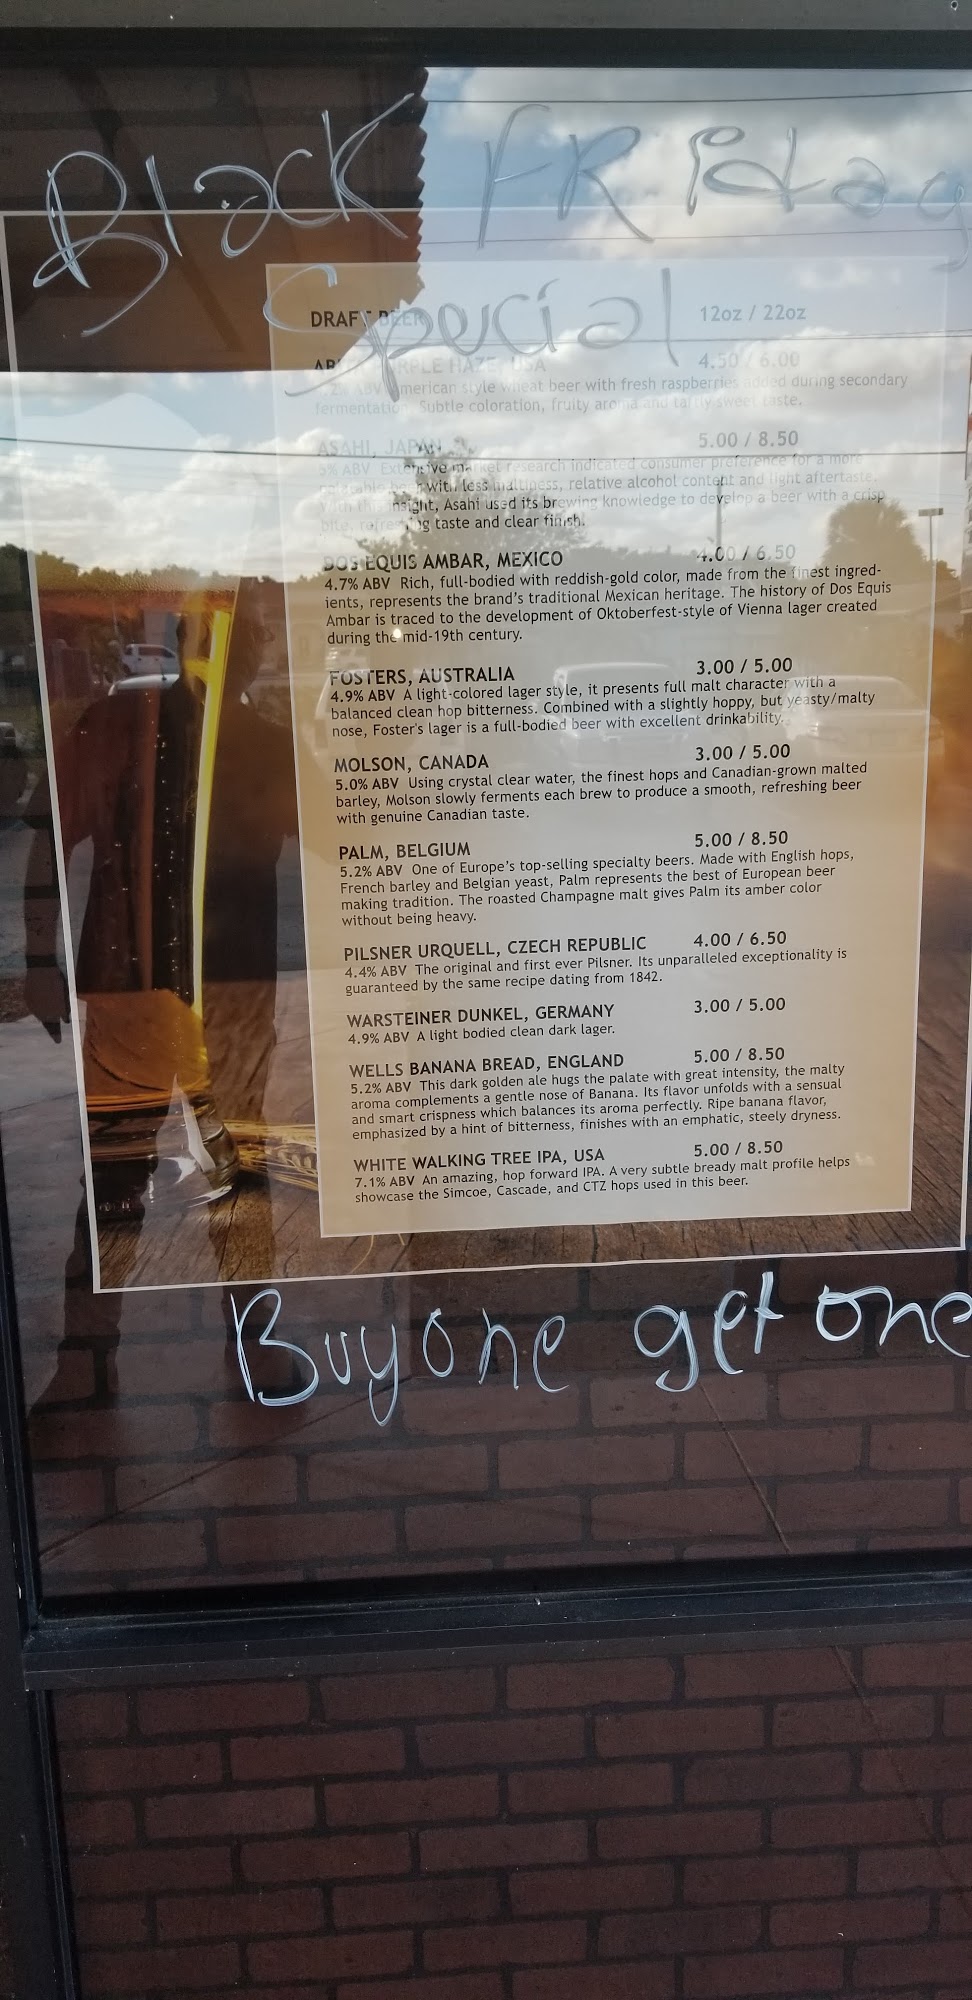 Black FRiday
Special
DRAFT BEER 12oz / 22oz
PURPLE HAZE, USA 4.50 / 6.00
ABV American style wheat beer with fresh raspberries added during secondary
fermentation. Subtle coloration, fruity aroma and tartly sweet taste.
ASAHI, JAPAN 5.00 / 8.50
5% ABV Extensive market research indicated consumer preference for a more
palatable beer with less maltiness, relative alcohol content and light aftertaste.
With this insight, Asahi used its brewing knowledge to develop a beer with a crisp
bite, refreshing taste and clear finish.
DOS EQUIS AMBAR, MEXICO 4.00 / 6.50
4.7% ABV Rich, full-bodied with reddish-gold color, made from the finest ingred-
ients, represents the brand's traditional Mexican heritage. The history of Dos Equis
Ambar is traced to the development of Oktoberfest-style of Vienna lager created
during the mid-19th century.
FOSTERS, AUSTRALIA 3.00 / 5.00
4.9% ABV A light-colored lager style, it presents full malt character with a
balanced clean hop bitterness. Combined with a slightly hoppy, but yeasty/malty
nose, Foster's lager is a full-bodied beer with excellent drinkability.
MOLSON, CANADA 3.00 / 5.00
5.0% ABV Using crystal clear water, the finest hops and Canadian-grown malted
barley, Molson slowly ferments each brew to produce a smooth, refreshing beer
with genuine Canadian taste.
PALM, BELGIUM 5.00 / 8.50
5.2% ABV One of Europe's top-selling specialty beers. Made with English hops,
French barley and Belgian yeast, Palm represents the best of European beer
making tradition. The roasted Champagne malt gives Palm its amber color
without being heavy.
PILSNER URQUELL, CZECH REPUBLIC 4.00 / 6.50
4.4% ABV The original and first ever Pilsner. Its unparalleled exceptionality is
guaranteed by the same recipe dating from 1842.
WARSTEINER DUNKEL, GERMANY 3.00 / 5.00
4.9% ABV A light bodied clean dark lager.
WELLS BANANA BREAD, ENGLAND 5.00 / 8.50
5.2% ABV This dark golden ale hugs the palate with great intensity, the malty
aroma complements a gentle nose of Banana. Its flavor unfolds with a sensual
and smart crispness which balances its aroma perfectly. Ripe banana flavor,
emphasized by a hint of bitterness, finishes with an emphatic, steely dryness.
WHITE WALKING TREE IPA, USA 5.00 / 8.50
7.1% ABV An amazing, hop forward IPA. A very subtle bready malt profile helps
showcase the Simcoe, Cascade, and CTZ hops used in this beer.
Buy one get one